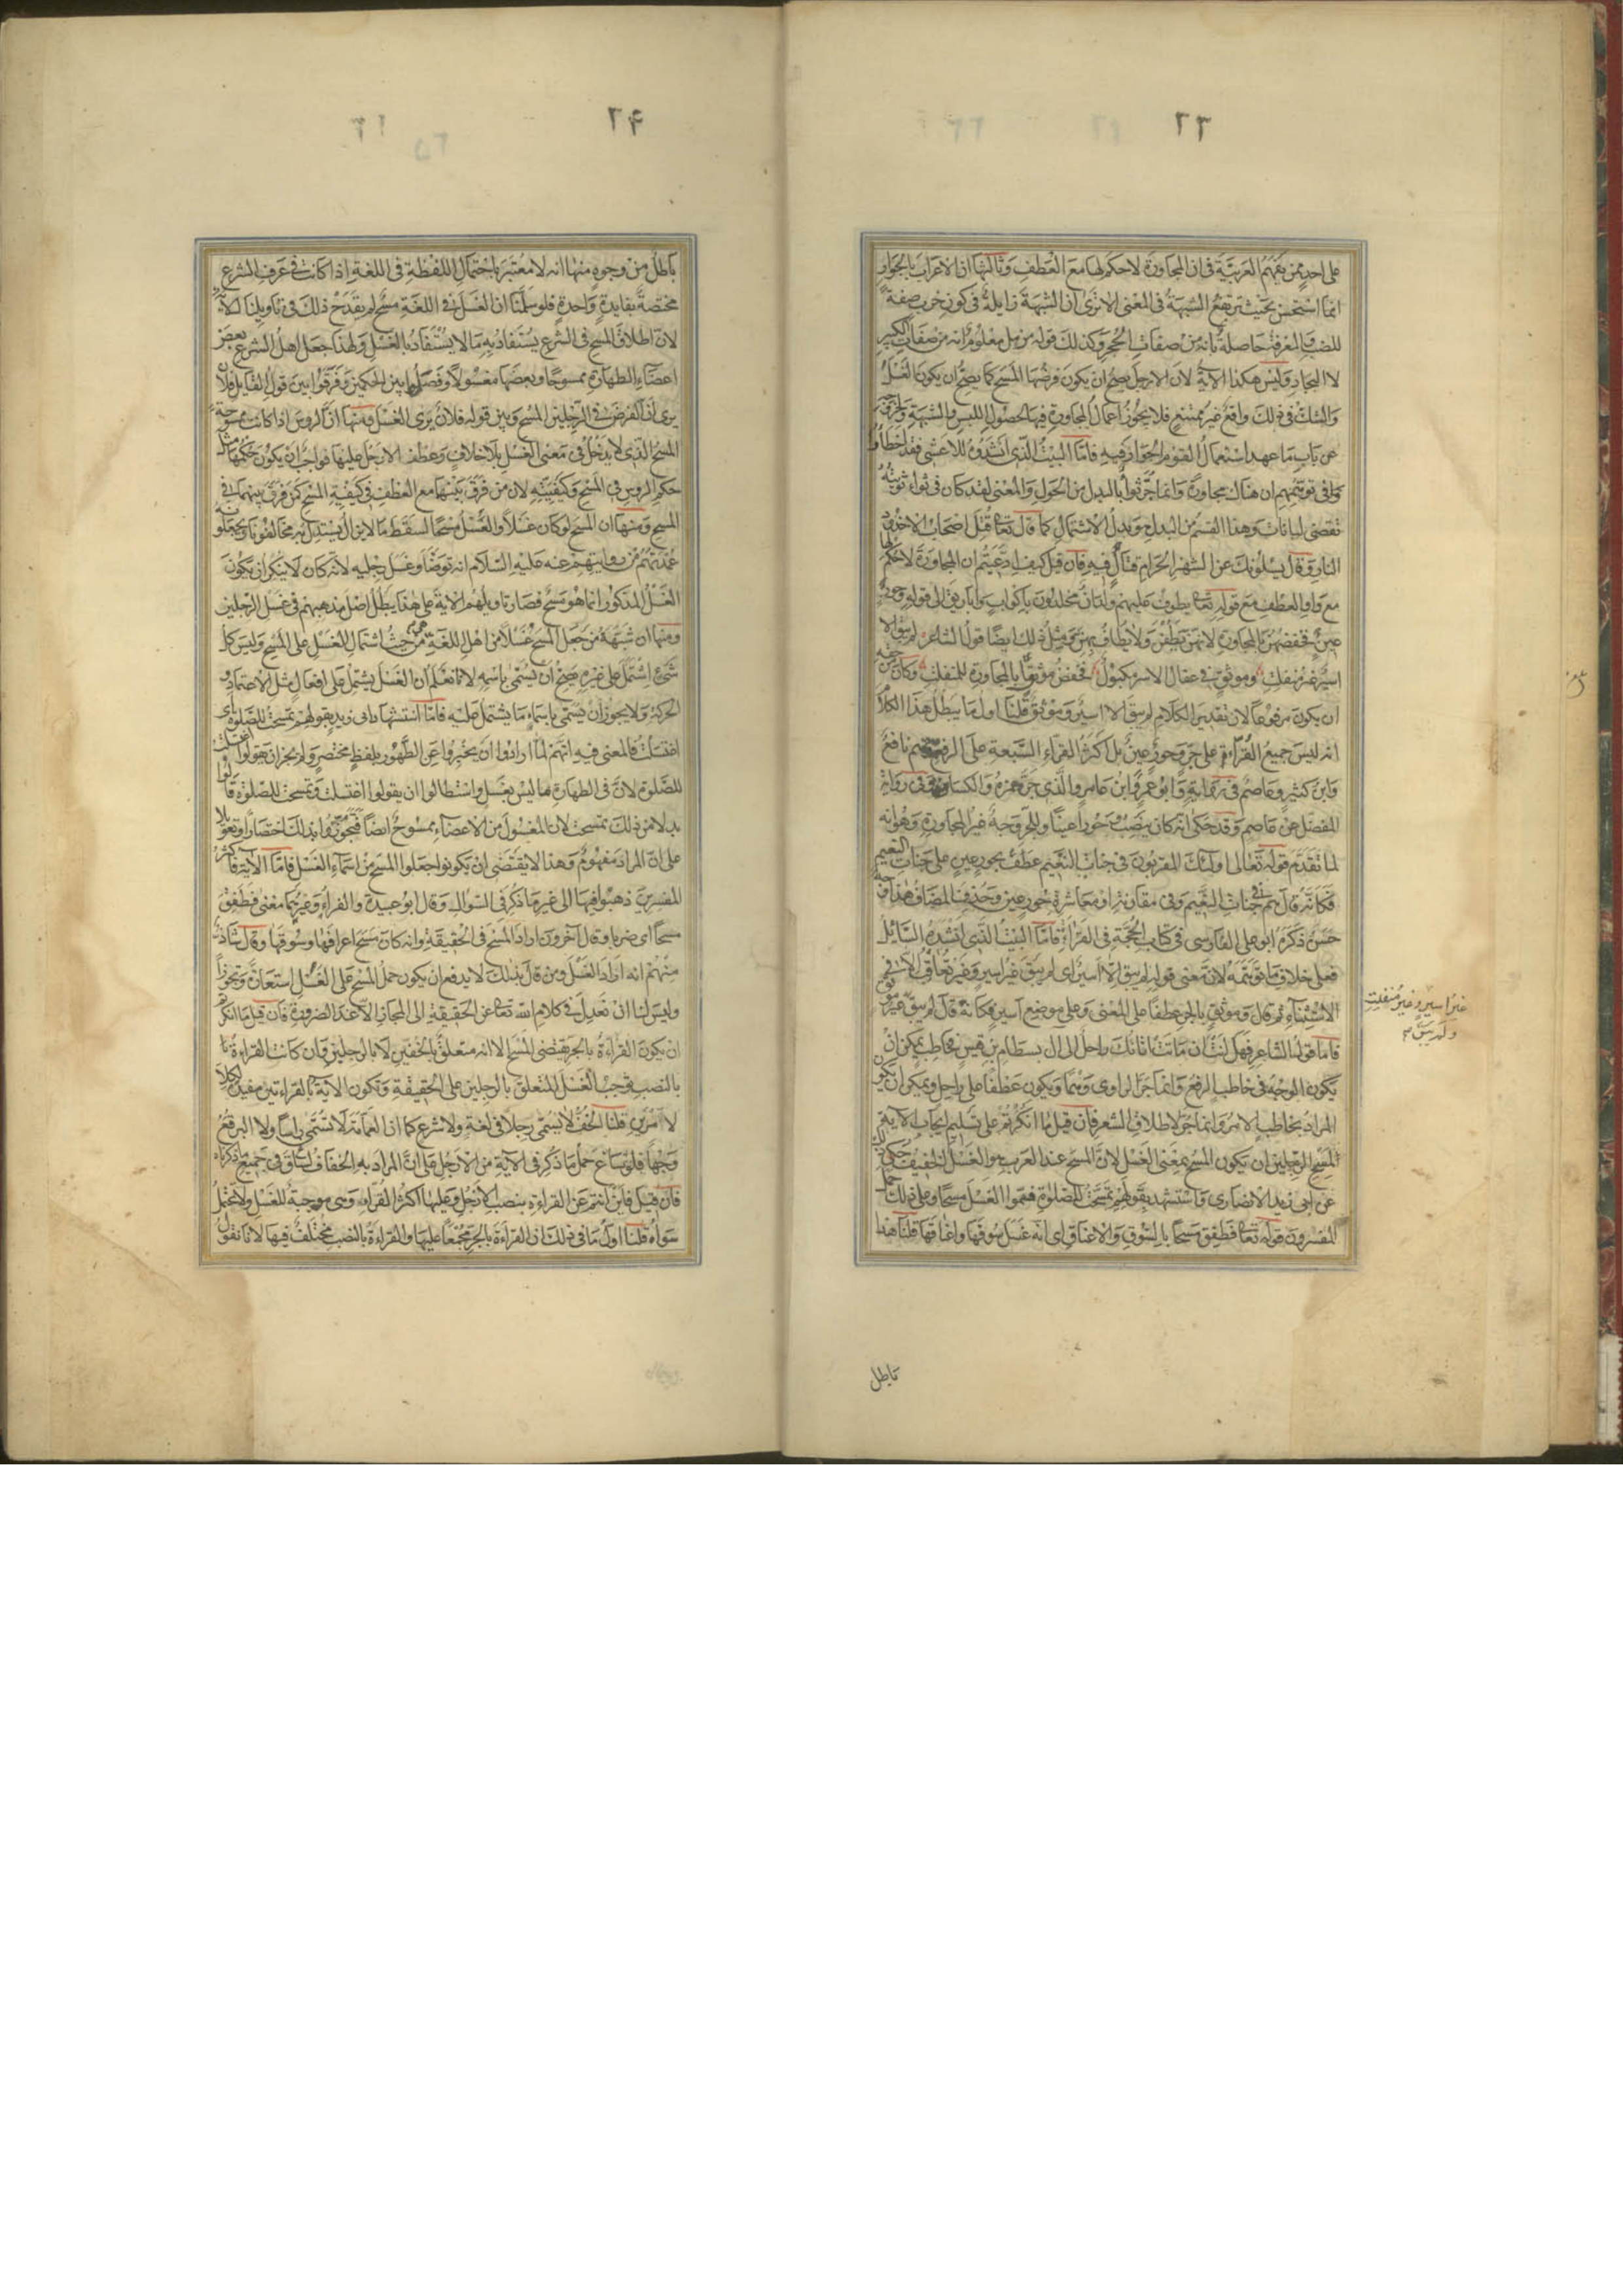 ٢٣
على احد ممن يفهم العربية فى ان المجاورة لا حكم لها مع العطف وثالثها ان الاعراب بالجوار
انما استحسن بحيث ترتفع الشبهة فى المعنى الا ترى ان الشبهة زايلة فى كون خرب صفة
للضب والمعرفة حاصلة بانه من صفات الحجر وكذلك قوله مزمل معلوم انه من صفات الكبير
لا البجاد وليس هكذا الآية لان الارجل يصح ان يكون فرضها المسح كما يصح ان يكون الغسل
والشك فى ذلك واقع غير ممتنع فلا يجوز اعمال المجاورة فيها لحصول اللبس والشبهة
عن باب ما عهد استعمال القوم الجوار فيه فاما البيت الذى انشدوه للاعشى فقد اخطأوا
فى توهمهم ان هناك مجاورة وانما جر ثواء بالبدل من الحول والمعنى لقد كان فى ثواء ثويته
تقضى لبانات وهذا القسم من البدل هو بدل الاشتمال كما قال تعالى قتل اصحاب الاخدود
النار وقال يسئلونك عن الشهر الحرام قتال فيه فان قيل كيف ادعيتم ان المجاورة لا حكم لها
مع واو العطف مع قوله تعالى يطوف عليهم ولدان مخلدون باكواب واباريق الى قوله وحور
عين فخفضهن بالمجاورة لانهن يطفن ولا يطاف بهن ومثل ذلك ايضا قول الشاعر لم يبق الا
اسير غير منفلت وموثق فى عقال الاسر مكبول فخفض موثقا بالمجاورة للمنفلت وكان من حقه
ان يكون مرفوعا لان تقدير الكلام لم يبق الا اسير وموثق قلنا اول ما يبطل هذا الكلام
انه ليس جميع القراءة على جر وحور عين بل اكثر القراء السبعة على الرفع وهم نافع
وابن كثير وعاصم فى رواية وابو عمرو وابن عامر والذى جر حمزة والكسائى وفى رواية
المفضل عن عاصم وقد حكى انه كان ينصب وحورا عينا وللجر وجه غير المجاورة وهو انه
لما تقدم قوله تعالى اولئك المقربون فى جنات النعيم عطف بحور عين على جنات النعيم
فكانه قال هم فى جنات النعيم وفى مقارنة او معاشرة حور عين وحذف المضاف هذا وجه
حسن ذكره ابو على الفارسى فى كتاب الحجة فى القراءة فاما البيت الذى انشده السائل
فعلى خلاف ما توهمه لان معنى قوله لم يبق الا اسير اى لم يبق غير اسير وغير تعاقب الا فى
الاستثناء ثم قال وموثق بالجر عطفا على المعنى وعلى موضع اسير فكانه قال لم يبق غير
فاما قول الشاعر فهل انت ان ماتت اتانك راحل الى ال بسطام بن قيس فخاطب يمكن ان
يكون الوجه فى خاطب الرفع وانما جر الراوى وهما ويكون عطفا على راحل ويمكن ان يكون
المراد بخاطب الامر وانما جر لاطلاق الشعر فان قيل ما انكرتم على تسليم ايجاب الآية
لمسح الرجلين ان يكون المسح بمعنى الغسل لان المسح عند العرب هو الغسل الخفيف حكى ذلك
عن ابى زيد الانصارى واستشهد بقولهم تمسحت للصلوة فسموا الغسل مسحا وعلى ذلك حمل
المفسرون قوله تعالى فطفق مسحا بالسوق والاعناق اى انه غسل سوقها واعناقها قلنا هذا
غير اسير وغير منفلت
ولم يبق
باطل
٢٤
باطل من وجوه منها انه لا معتبر باحتمال اللفظة فى اللغة اذا كانت فى عرف الشرع
مختصة بفايدة واحدة فلو سلمنا ان الغسل فى اللغة مسح لم يقدح ذلك فى تاويلنا للآية
لان اطلاق المسح فى الشرع يستفاد به ما لا يستفاد بالغسل ولهذا جعل اهل الشرع بعض
اعضاء الطهارة ممسوحا وبعضها مغسولا وفصلوا بين الحكمين وفرقوا بين قول القايل فلان
يرى ان الفرض فى الرجلين المسح وبين قوله فلان يرى الغسل ومنها ان الروس اذا كانت ممسوحة
المسح الذى لا يدخل فى معنى الغسل بلا خلاف وعطف الارجل عليها فواجب ان يكون حكمها مثل
حكم الروس فى المسح وكيفيته لان من فرق بينهما مع العطف فى كيفية المسح كمن فرق بينهما فى
المسح ومنها ان المسح لو كان غسلا والغسل مسحا لسقط ما لا يزال يستدل به مخالفونا ويجعلونه
عمدتهم من روايتهم عنه عليه السلام انه توضا وغسل رجليه لانه كان لا ينكر ان يكون
الغسل المذكور انما هو مسح فصار تاويلهم الآية على هذا يبطل اصل مذهبهم فى غسل الرجلين
ومنها ان شبهة من جعل المسح غسلا من اهل اللغة هى من حيث اشتمال الغسل على المسح وليس كل
شىء اشتمل على غيره يصح ان يسمى باسمه لانا نعلم ان الغسل يشتمل على افعال مثل الاعتماد و
الحركة ولا يجوز ان يسمى باسماء ما يشتمل عليه فاما استشهاد ابى زيد بقولهم تمسحت للصلوة اى
اغتسلت فالمعنى فيه انهم لما ارادوا ان يخبروا عن الطهور بلفظ مختصر ولم يجز ان يقولوا اغتسلت
للصلوة لان فى الطهارة ما ليس بغسل واستطالوا ان يقولوا اغتسلت وتمسحت للصلوة قالوا
بدلا من ذلك تمسحت لان المغسول من الاعضاء ممسوح ايضا فتجوزوا بذلك اختصارا وتعويلا
على ان المراد مفهوم وهذا لا يقتضى ان يكونوا جعلوا المسح من اسماء الغسل فاما الآية فاكثر
المفسرين ذهبوا فيها الى غير ما ذكر فى السؤال وقال ابو عبيدة والفراء وغيرهما معنى فطفق
مسحا اى ضربا وقال آخرون اراد المسح فى الحقيقة وانه كان مسح اعرافها وسوقها وقال شاذ
منهم انه اراد الغسل ومن قال بذلك لا يدفع ان يكون حمل المسح على الغسل استعارة وتجوزا
وليس لنا ان نعدل فى كلام الله تعالى عن الحقيقة الى المجاز الا عند الضرورة فان قيل ما انكرتم
ان يكون القراءة بالجر يقتضى المسح الا انه متعلق بالخفين لا بالرجلين وان كانت القراءة
بالنصب توجب الغسل المتعلق بالرجلين على الحقيقة وتكون الآية بالقراءتين مفيدة لكلا
الامرين قلنا الخف لا يسمى رجلا فى لغة ولا شرع كما ان العمامة لا تسمى راسا ولا البرقع
وجها فلو ساغ حمل ما ذكر فى الآية من الارجل على ان المراد به الخفاف لساغ فى جميع ما ذكرناه
فان قيل فاين انتم عن القراءة بنصب الارجل وعليها اكثر القراء وهى موجبة للغسل ولا يحتمل
سواه قلنا اول ما فى ذلك ان القراءة بالجر مجمعا عليها والقراءة بالنصب مختلف فيها لانا نقول